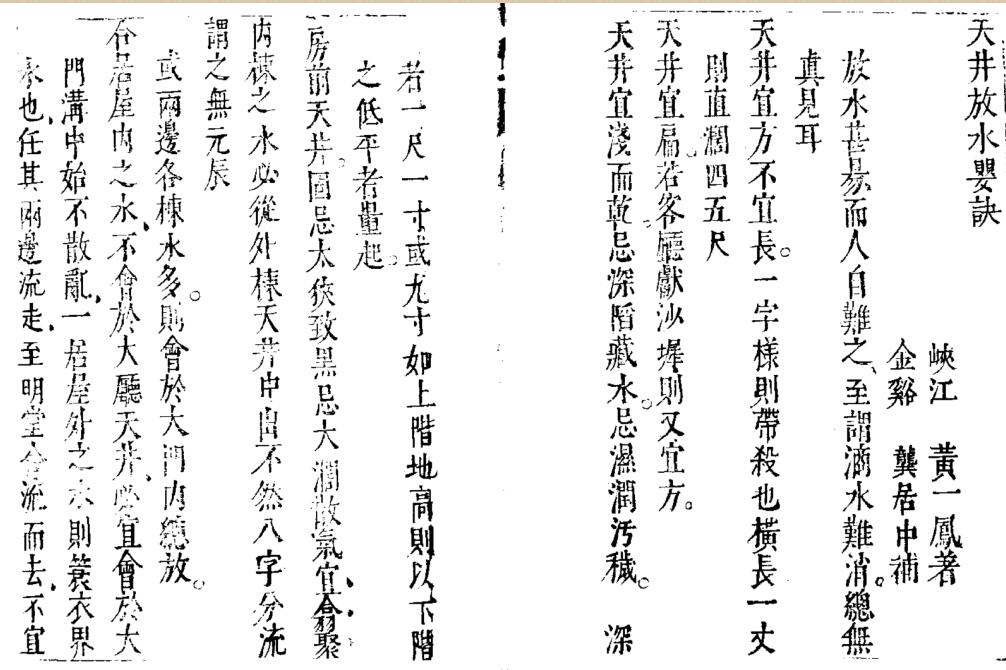 天井放水嬰訣
峽江 黃一鳳著
金谿 龔居中補
放水甚易而人自難之、至謂滴水難消。總無
真見耳
天井宜方不宜長。一字樣則帶殺也橫長一丈
則直濶四五尺
天井宜扁。若客廳獻沙墀則又宜方。
天井宜淺而乾。忌深陷藏水。忌濕潤汚穢。 深
若一尺一寸或尤寸如上階地高則以下階
之低平者量起。
房前天井。圖忌太狹致黑忌大濶散氣宜翕聚
內棟之水必從外棟天井中出不然八字分流
謂之無元辰
或兩邊各棟水多。則會於大門內總放。
合居屋內之水、不會於大廳天井、必宜會於大
門溝中始不散亂、一居屋外之水則簑衣界
水也、任其兩邊流走、至明堂合流而去、不宜